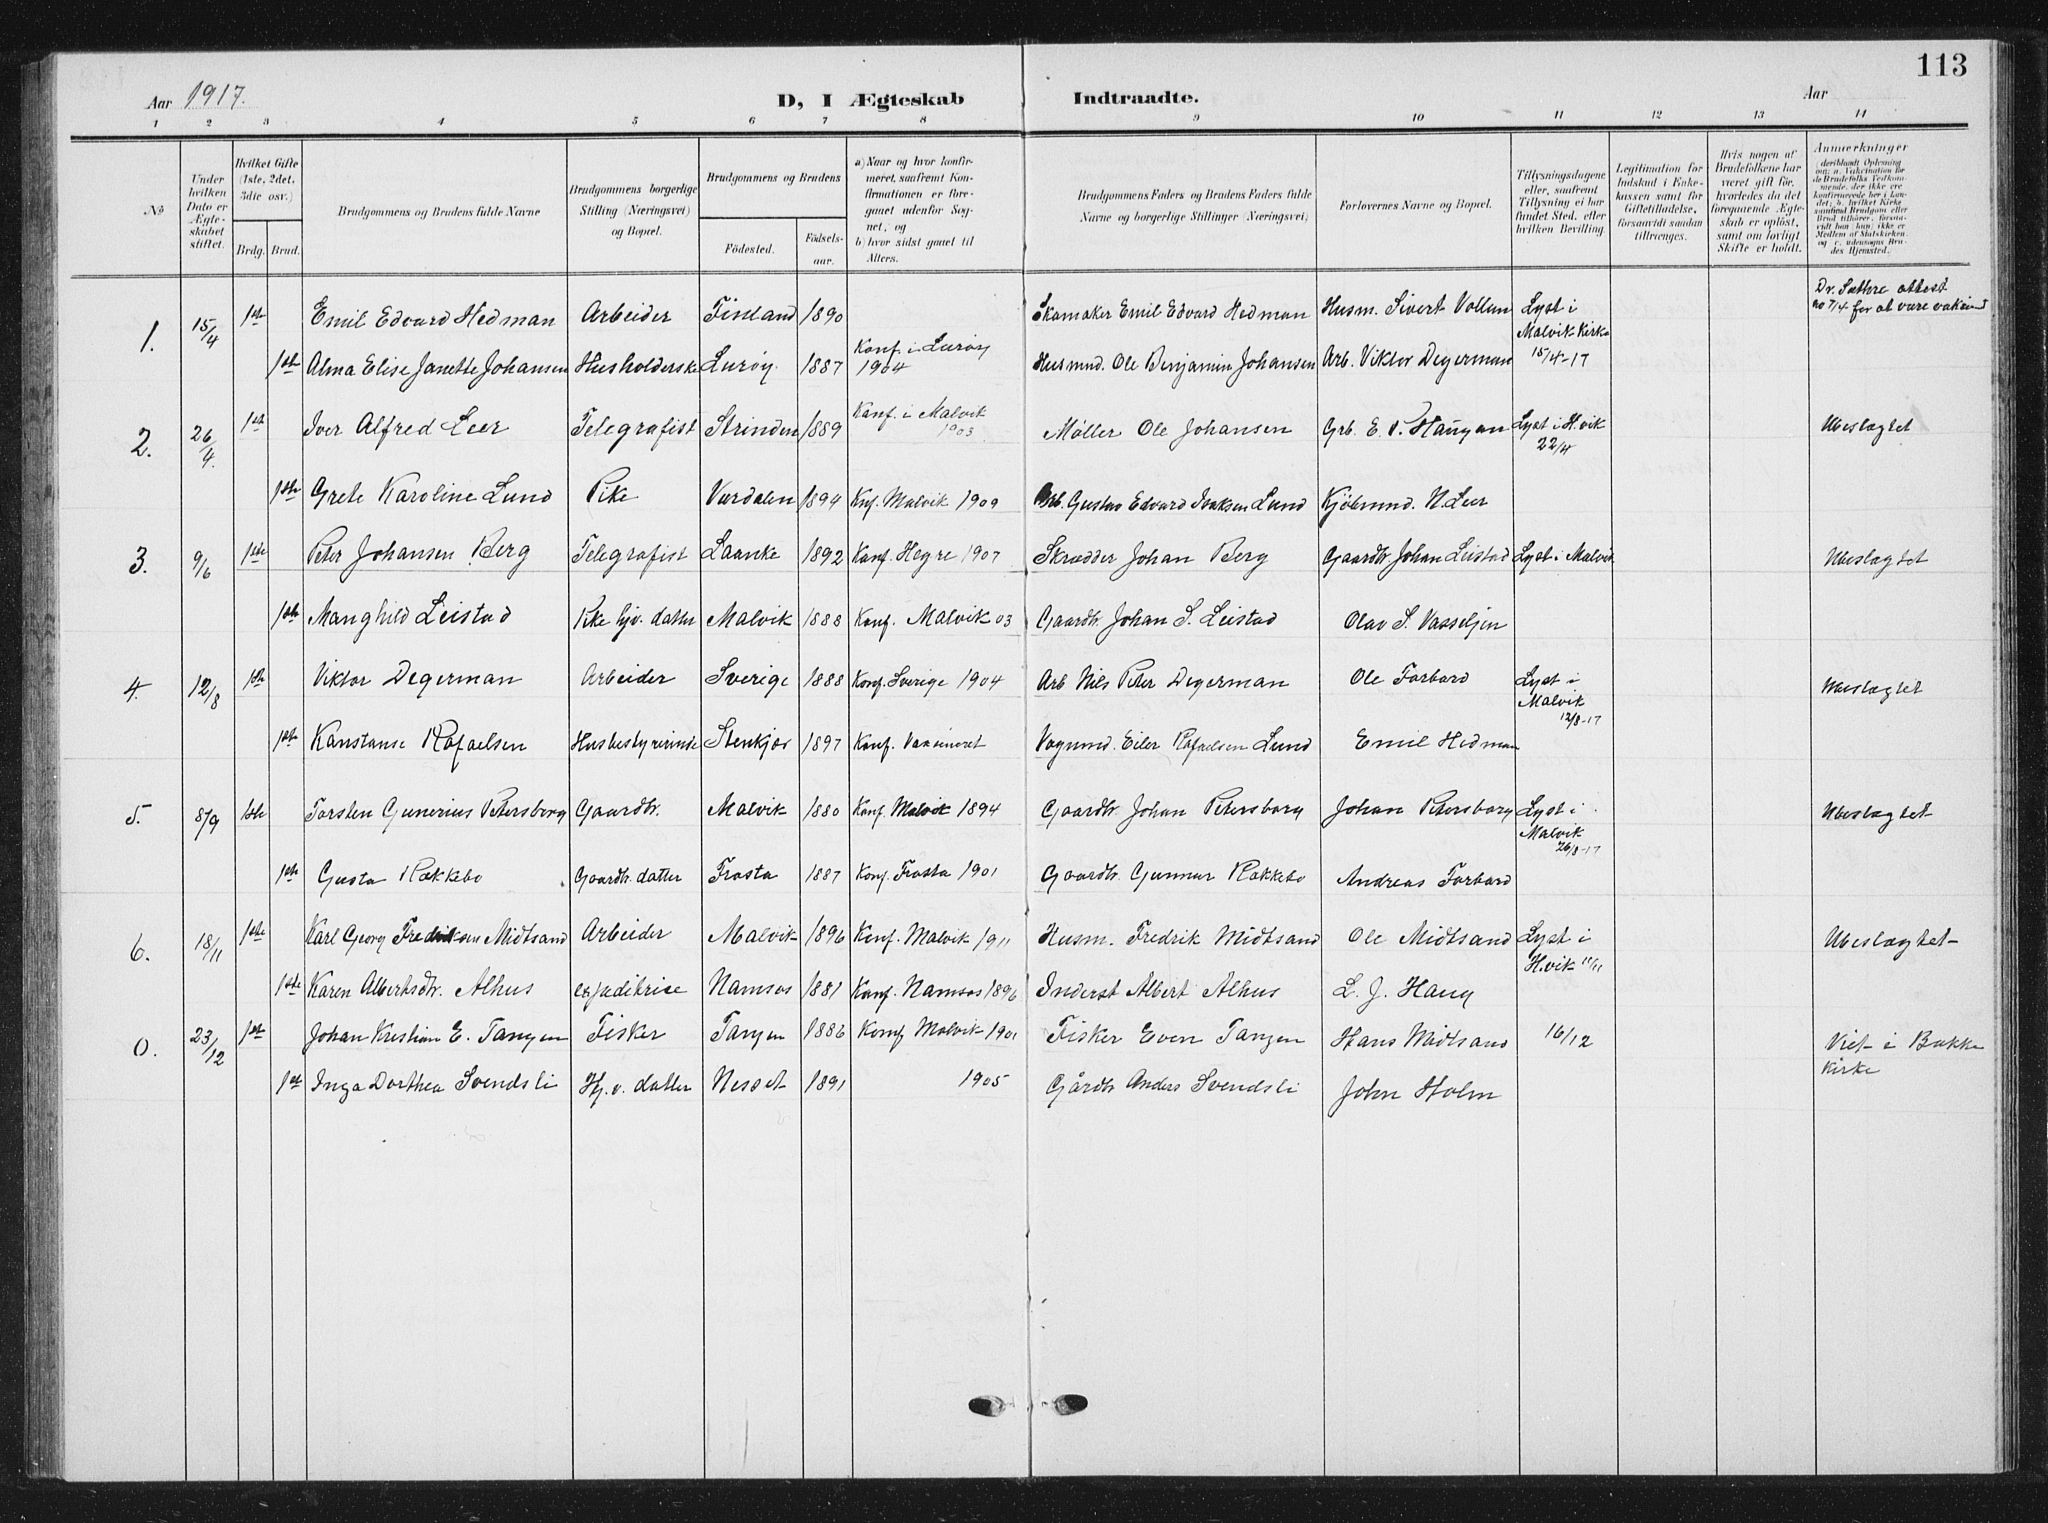 113
Aar 1917. D, I Ægteskab Indtraadte. Aar
1 2 3 4 5 6 7 8 9 10 11 12 13 14
No
Under hvilken Dato er Ægteskabet stiftet.
Hvilket Gifte (1ste, 2det, 3die osv.)
Brdg. Brud.
Brudgommens og Brudens fulde Navne
Brudgommens borgerlige Stilling (Næringsvei) og Bopæl.
Brudgommens og Brudens
Fødested. Fødsels-aar.
a) Naar og hvor konfirmeret, saafremt Konfirmationen er foregaaet udenfor Sognet; og
b) hvor sidst gaaet til Alters.
Brudgommens Faders og Brudens Faders fulde Navne og borgerlige Stillinger (Næringsvei)
Forlovernes Navne og Bopæl.
Tillysningsdagene eller, saafremt Tillysning ei har fundet Sted, efter hvilken Bevilling.
Legitimation for Indskud i Enkekassen samt for Giftetilladelse, forsaavidt saadan tiltrænges.
Hvis nogen af Brudefolkene har været gift før, hvorledes da det foregaaende Ægteskab er opløst, samt om lovligt Skifte er holdt.
Anmærkninger
1. 15/4 1st Emil Edvard Hedman Arbeider Finland 1890 Skomaker Emil Edvard Hedman Husm. Sivert Vollan Lyst i Malvik Kirke 15/4-17 Dr. Sæthre attest
1ste Alma Elise Janette Johansen Husholderske Lurøy 1887 Konf. i Lurøy 1904 Husmnd. Ole Benjamin Johansen Arb. Viktor Degerman
2. 26/4. 1ste Iver Alfred Leer Telegrafist Strinden 1889 Konf. i Malvik 1903 Møller Ole Johansen Lyst i H.vik 22/4 Ubeslægtet
1ste Grete Karoline Lund Pike Værdalen 1894 Knf. Malvik 1909 Arb. Gustav Edvard Isaksen Lund Kjøbmnd. N. Leer
3. 9/6 1ste Peter Johansen Berg Telegrafist Laanke 1892 Konf. Hegre 1907 Skrædder Johan Berg Gaardbr. Johan Leistad Lyst i Malvik Ubeslægtet
1ste Manghild Leistad Pike hjv. datter Malvik 1888 Konf. Malvik 03 Gaardbr. Johan S. Leistad Olav S. Vasseljen
4. 12/8 1ste Viktor Degerman Arbeider Sverige 1888 Konf. Sverige 1904 Arb Nils Peter Degerman Ole Forbord Lyst i Malvik 12/8-17 Ubeslægtet
1ste Konstanse Rafaelsen Husbestyrerinde Stenkjær 1897 Konf. Vaxineret Vognmd. Eiler Rafaelsen Lund Emil Hedman
5. 8/9 1ste Torsten Gunerius Petersborg Gaardbr. Malvik 1880 Konf. Malvik 1894 Gaardbr. Johan Petersborg Johan Petersborg Lyst i Malvik 26/8-17 Ubeslægtet
1ste Gusta Røkkebo Gaardbr. datter Frosta 1887 Konf. Frosta 1901 Gaardbr. Gunnar Røkkebo Andreas Forbord
6. 18/11 1ste Karl Georg Fredriksen Midtsand Arbeider Malvik 1896 Konf. Malvik 1911 Husm. Fredrik Midtsand Ole Midtsand Lyst i H.vik 11/11 Ubeslægtet
1ste Karen Albertsdtr. Alhus expeditrise Namsos 1881 Konf. Namsos 1896 Inderst Albert Alhus L. J. Haug
0. 23/12 1st Johan Kristian E. Tangen Fisker Tangen 1886 Konf Malvik 1901 Fisker Even Tangen Hans Midtsand 16/12 Viet i Bakke Kirke
1st Inga Dorthea Svendsli Hj. v. datter Nesset 1891 1905 Gårdbr Anders Svendsli John Holm